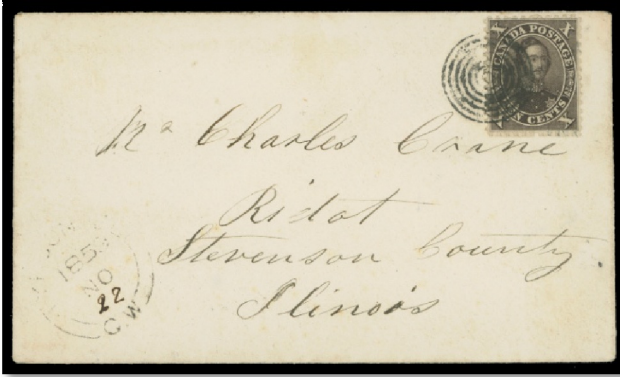 X CANADA POSTAGE X
X N CENTS X
Mr Charles Crane
Ridot
Stevenson County
Illinois
185
NO
22
C.W